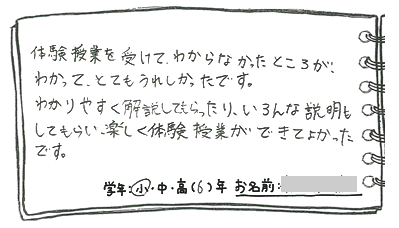 体験授業を受けて、わからなかったところが、
わかって、とてもうれしかったです。
わかりやすく解説してもらったり、いろんな説明も
してもらい、楽しく体験授業ができてよかった
です。
学年:小・中・高(6)年 お名前: